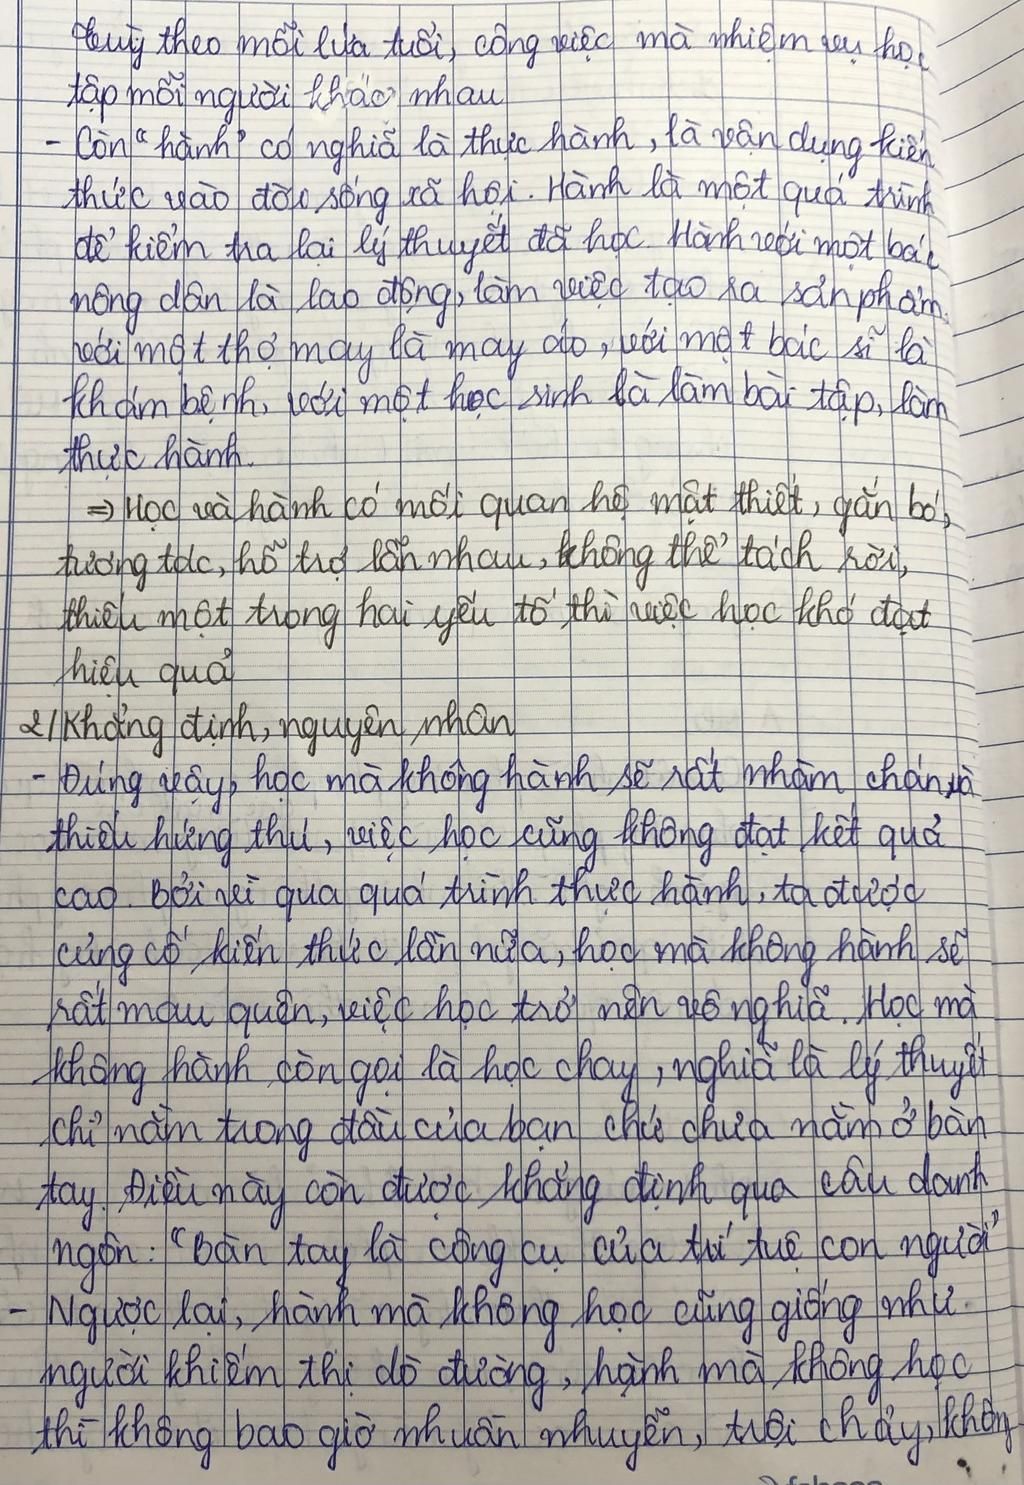 tuỳ theo mỗi lứa tuổi, công việc mà nhiệm vụ học
tập mỗi người khác nhau
- Còn "hành" có nghĩa là thực hành, là vận dụng kiến
thức vào đời sống xã hội. Hành là một quá trình
để kiểm tra lại lý thuyết đã học. Hành với một bác
nông dân là lao động, làm việc tạo ra sản phẩm,
với một thợ may là may áo, với một bác sĩ là
khám bệnh, với một học sinh là làm bài tập, làm
thực hành.
⇒ Học và hành có mối quan hệ mật thiết, gắn bó,
tương tác, hỗ trợ lẫn nhau, không thể tách rời,
thiếu một trong hai yếu tố thì việc học khó đạt
hiệu quả
2/ Khẳng định, nguyên nhân
- Đúng vậy, học mà không hành sẽ rất nhàm chán và
thiếu hứng thú, việc học cũng không đạt kết quả
cao. Bởi vì qua quá trình thực hành, ta được
củng cố kiến thức lần nữa, học mà không hành sẽ
rất mau quên, việc học trở nên vô nghĩa. Học mà
không hành còn gọi là học chay, nghĩa là lý thuyết
chỉ nằm trong đầu của bạn chứ chưa nằm ở bàn
tay. Điều này còn được khẳng định qua câu danh
ngôn: "Bàn tay là công cụ của trí tuệ con người"
- Ngược lại, hành mà không học cũng giống như
người khiếm thị dò đường, hành mà không học
thì không bao giờ nhuần nhuyễn, trôi chảy, không